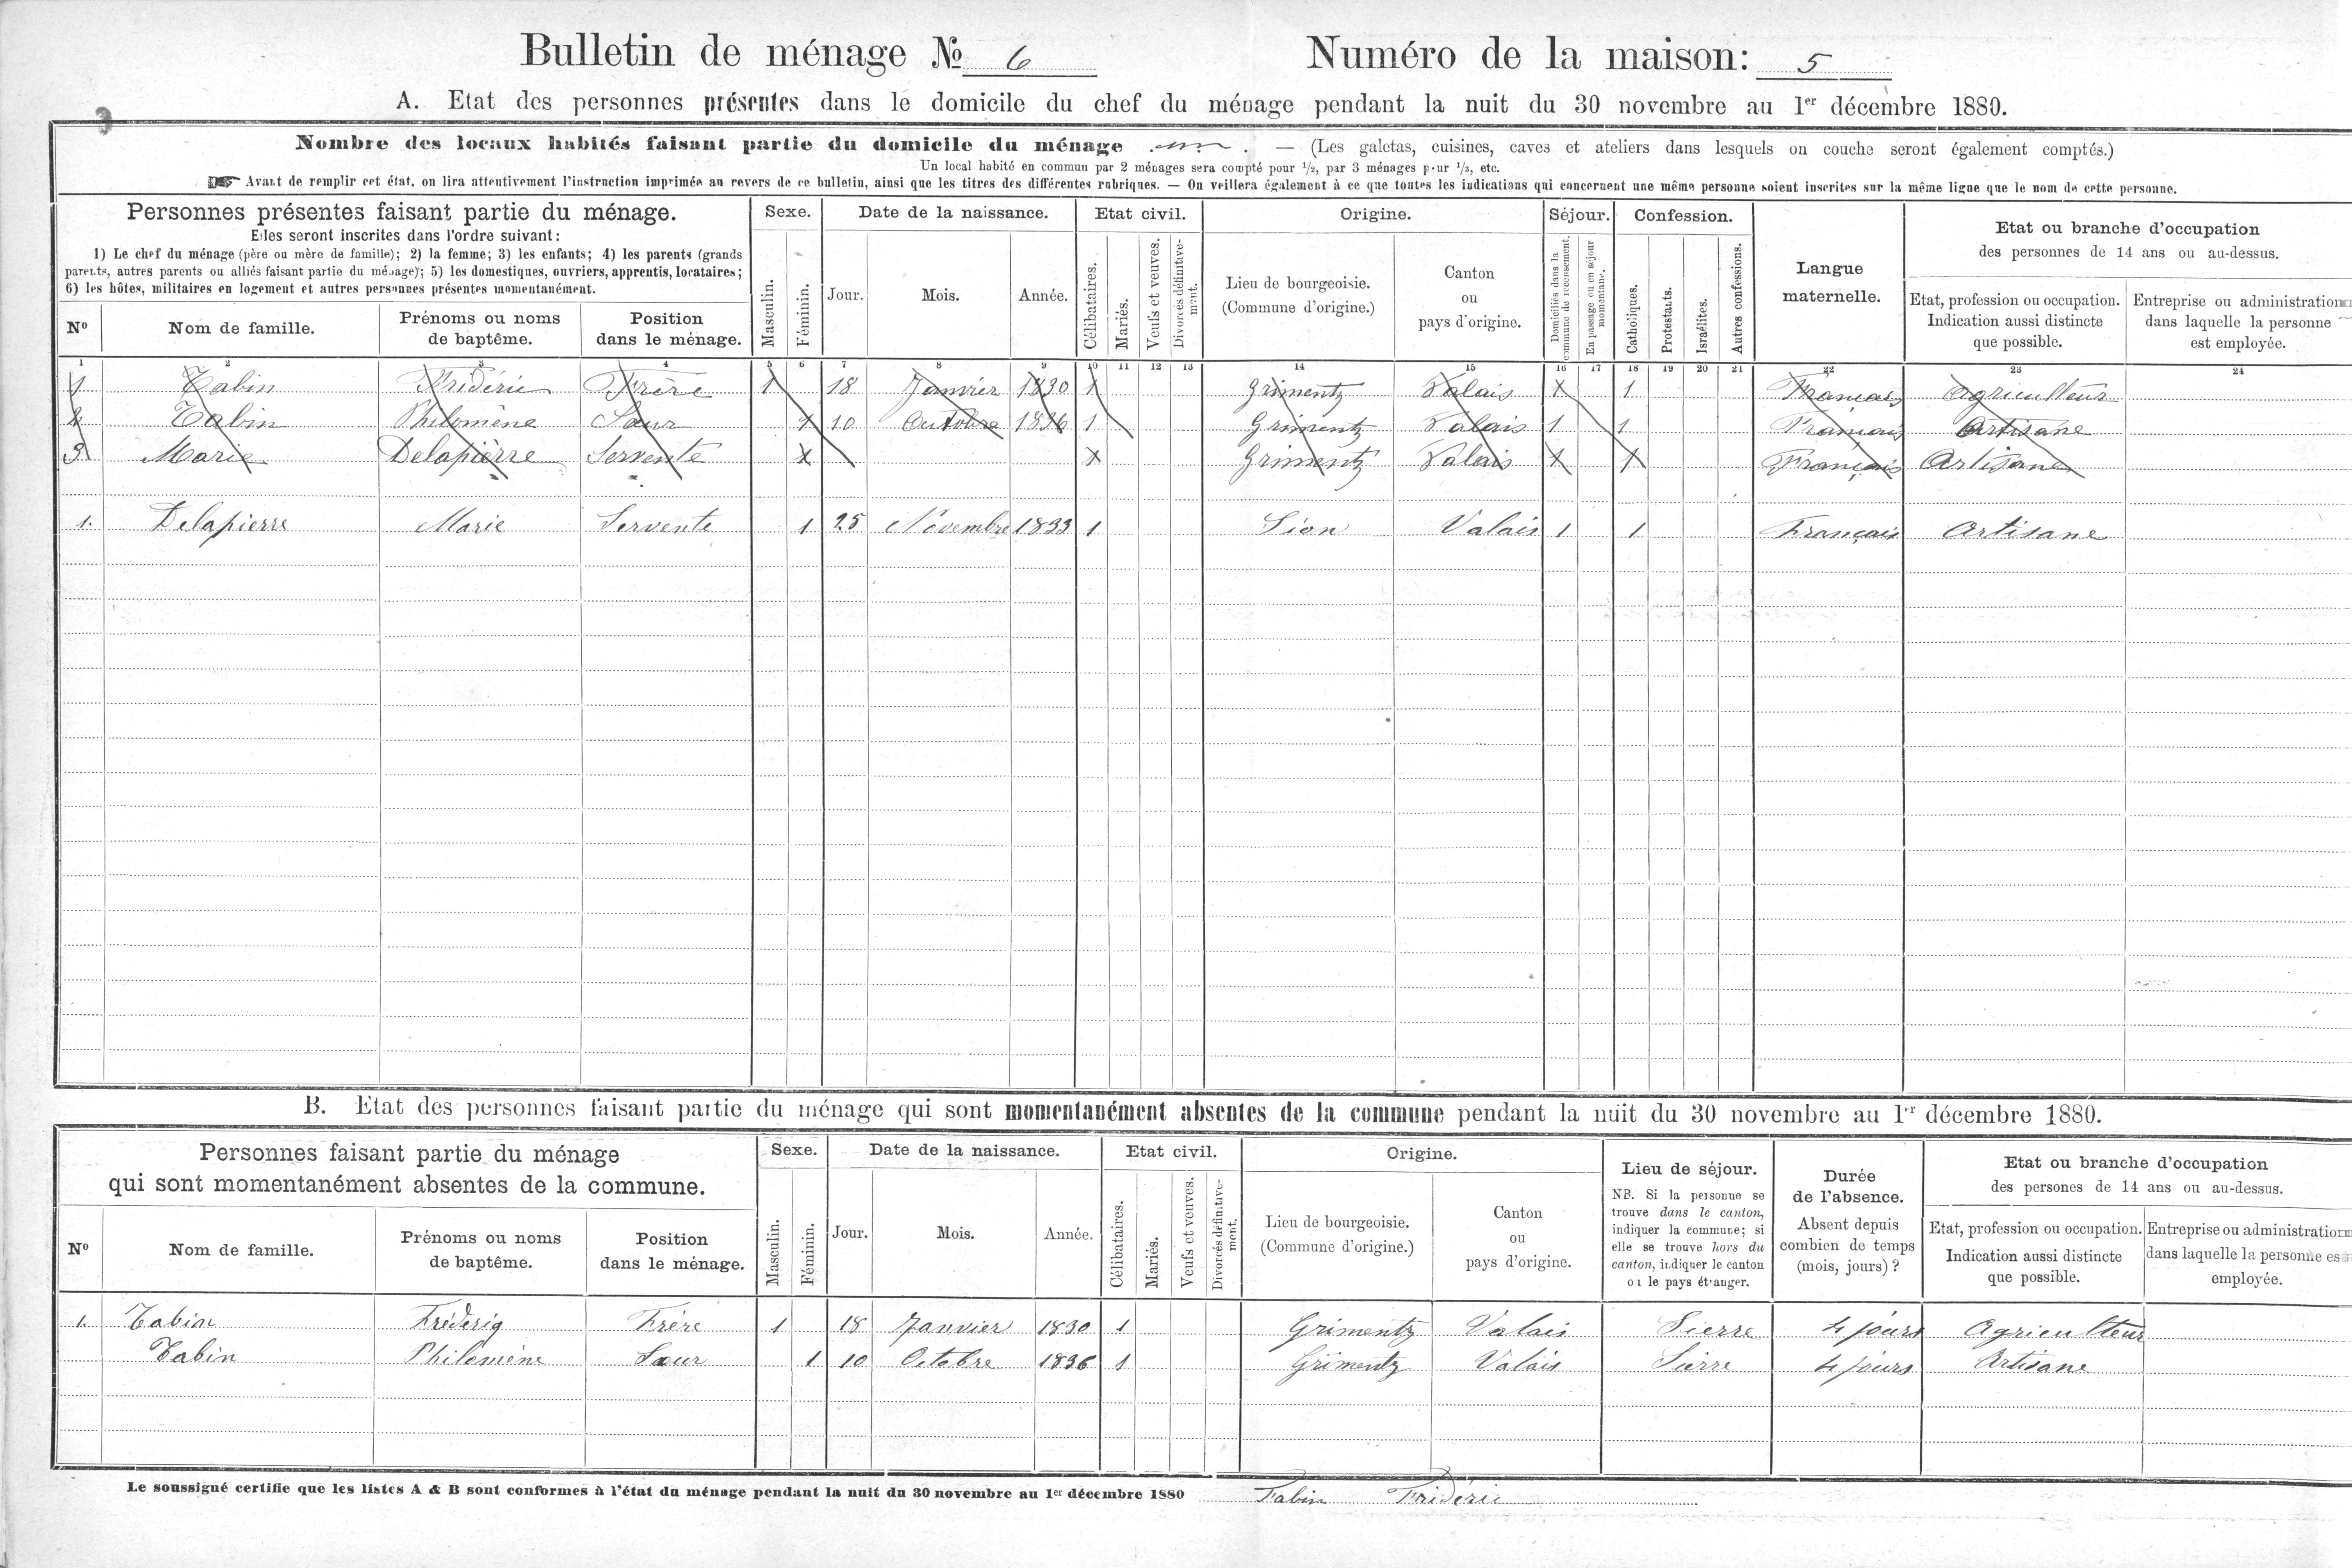 Bulletin de ménage № 6 Numéro de la maison: 5
A. Etat des personnes présentes dans le domicile du chef du ménage pendant la nuit du 30 novembre au 1er décembre 1880.
Nombre des locaux habités faisant partie du domicile du ménage un. — (Les galetas, cuisines, caves et ateliers dans lesquels on couche seront également comptés.)
Un local habité en commun par 2 ménages sera compté pour 1/2, par 3 ménages pour 1/3, etc.
☞ Avant de remplir cet état, on lira attentivement l'instruction imprimée au revers de ce bulletin, ainsi que les titres des différentes rubriques. — On veillera également à ce que toutes les indications qui concernent une même personne soient inscrites sur la même ligne que le nom de cette personne.
Personnes présentes faisant partie du ménage. Sexe. Date de la naissance. Etat civil. Origine. Séjour. Confession. Langue maternelle. Etat ou branche d'occupation
des personnes de 14 ans ou au-dessus.
Elles seront inscrites dans l'ordre suivant:
1) Le chef du ménage (père ou mère de famille); 2) la femme; 3) les enfants; 4) les parents (grands
parents, autres parents ou alliés faisant partie du ménage); 5) les domestiques, ouvriers, apprentis, locataires;
6) les hôtes, militaires en logement et autres personnes présentes momentanément.
No Nom de famille. Prénoms ou noms de baptême. Position dans le ménage. Masculin. Féminin. Jour. Mois. Année. Célibataires. Mariés. Veufs et veuves. Divorcés définitivement. Lieu de bourgeoisie. (Commune d'origine.) Canton ou pays d'origine. Domiciliés dans la commune de recensement. En passage ou en séjour momentané. Catholiques. Protestants. Israélites. Autres confessions. Etat, profession ou occupation. Indication aussi distincte que possible. Entreprise ou administration dans laquelle la personne est employée.
1 2 3 4 5 6 7 8 9 10 11 12 13 14 15 16 17 18 19 20 21 22 23 24
1 Tabin Fridéric Frère 1 18 Janvier 1830 1 Grimentz Valais 1 1 Français Agriculteur
2 Tabin Philomène Sœur 1 10 Octobre 1836 1 Grimentz Valais 1 1 Français Artisane
3 Marie Delapièrre Servente 1 1 Grimentz Valais 1 1 Français Artisane
1. Delapierre Marie Servente 1 25 Novembre 1833 1 Sion Valais 1 1 Français Artisane
B. Etat des personnes faisant partie du ménage qui sont momentanément absentes de la commune pendant la nuit du 30 novembre au 1er décembre 1880.
Personnes faisant partie du ménage
qui sont momentanément absentes de la commune. Sexe. Date de la naissance. Etat civil. Origine. Lieu de séjour. Durée de l'absence. Etat ou branche d'occupation
des persones de 14 ans ou au-dessus.
No Nom de famille. Prénoms ou noms de baptême. Position dans le ménage. Masculin. Féminin. Jour. Mois. Année. Célibataires. Mariés. Veufs et veuves. Divorcés définitivement. Lieu de bourgeoisie. (Commune d'origine.) Canton ou pays d'origine. NB. Si la personne se trouve dans le canton, indiquer la commune; si elle se trouve hors du canton, indiquer le canton ou le pays étranger. Absent depuis combien de temps (mois, jours)? Etat, profession ou occupation. Indication aussi distincte que possible. Entreprise ou administration dans laquelle la personne est employée.
1. Tabin Fréderig Frère 1 18 Janvier 1830 1 Grimentz Valais Sierre 4 jours Agriculteur
Tabin Philomène Sœur 1 10 Octobre 1836 1 Grimentz Valais Sierre 4 jours Artisane
Le soussigné certifie que les listes A & B sont conformes à l'état du ménage pendant la nuit du 30 novembre au 1er décembre 1880 Tabin Fridéric